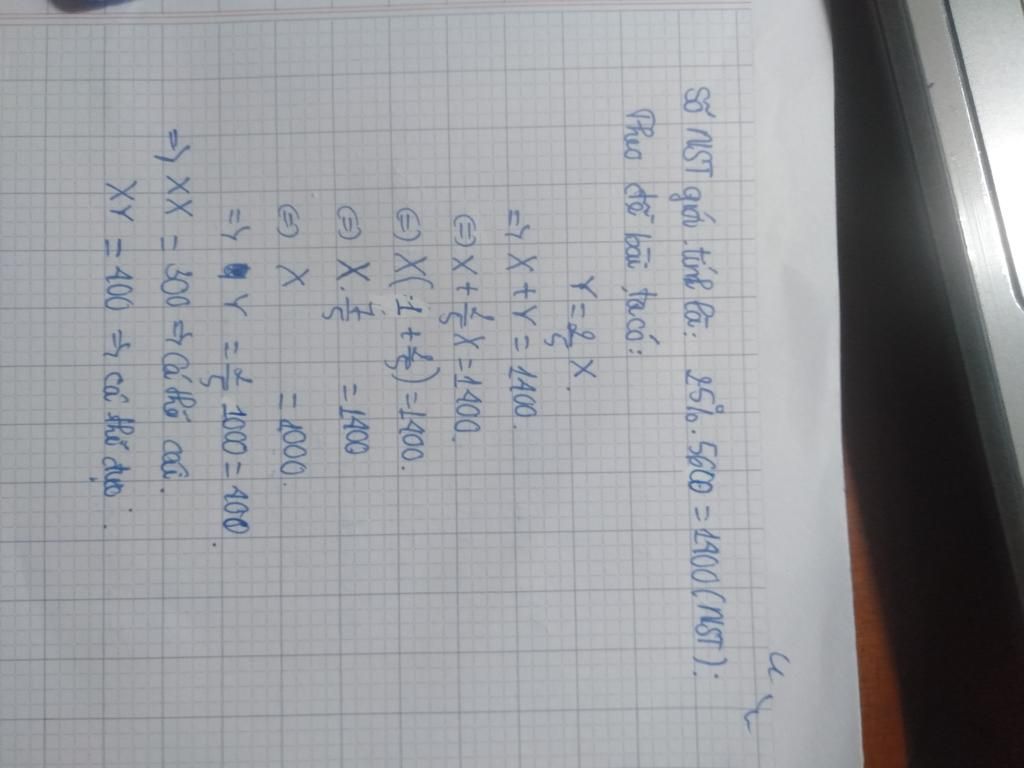 Số NST giới tính là: 25%. 5600 = 1400 (NST).
Theo đề bài ta có:
Y = 2/5 X.
=> X + Y = 1400.
(=) X + 2/5 X = 1400.
(=) X( 1 + 2/5 ) = 1400.
(=) X . 7/5 = 1400
(=) X = 1000.
=> Y = 2/5 . 1000 = 400.
=> XX = 300 => Cá thể cái.
XY = 400 => cá thể đực.